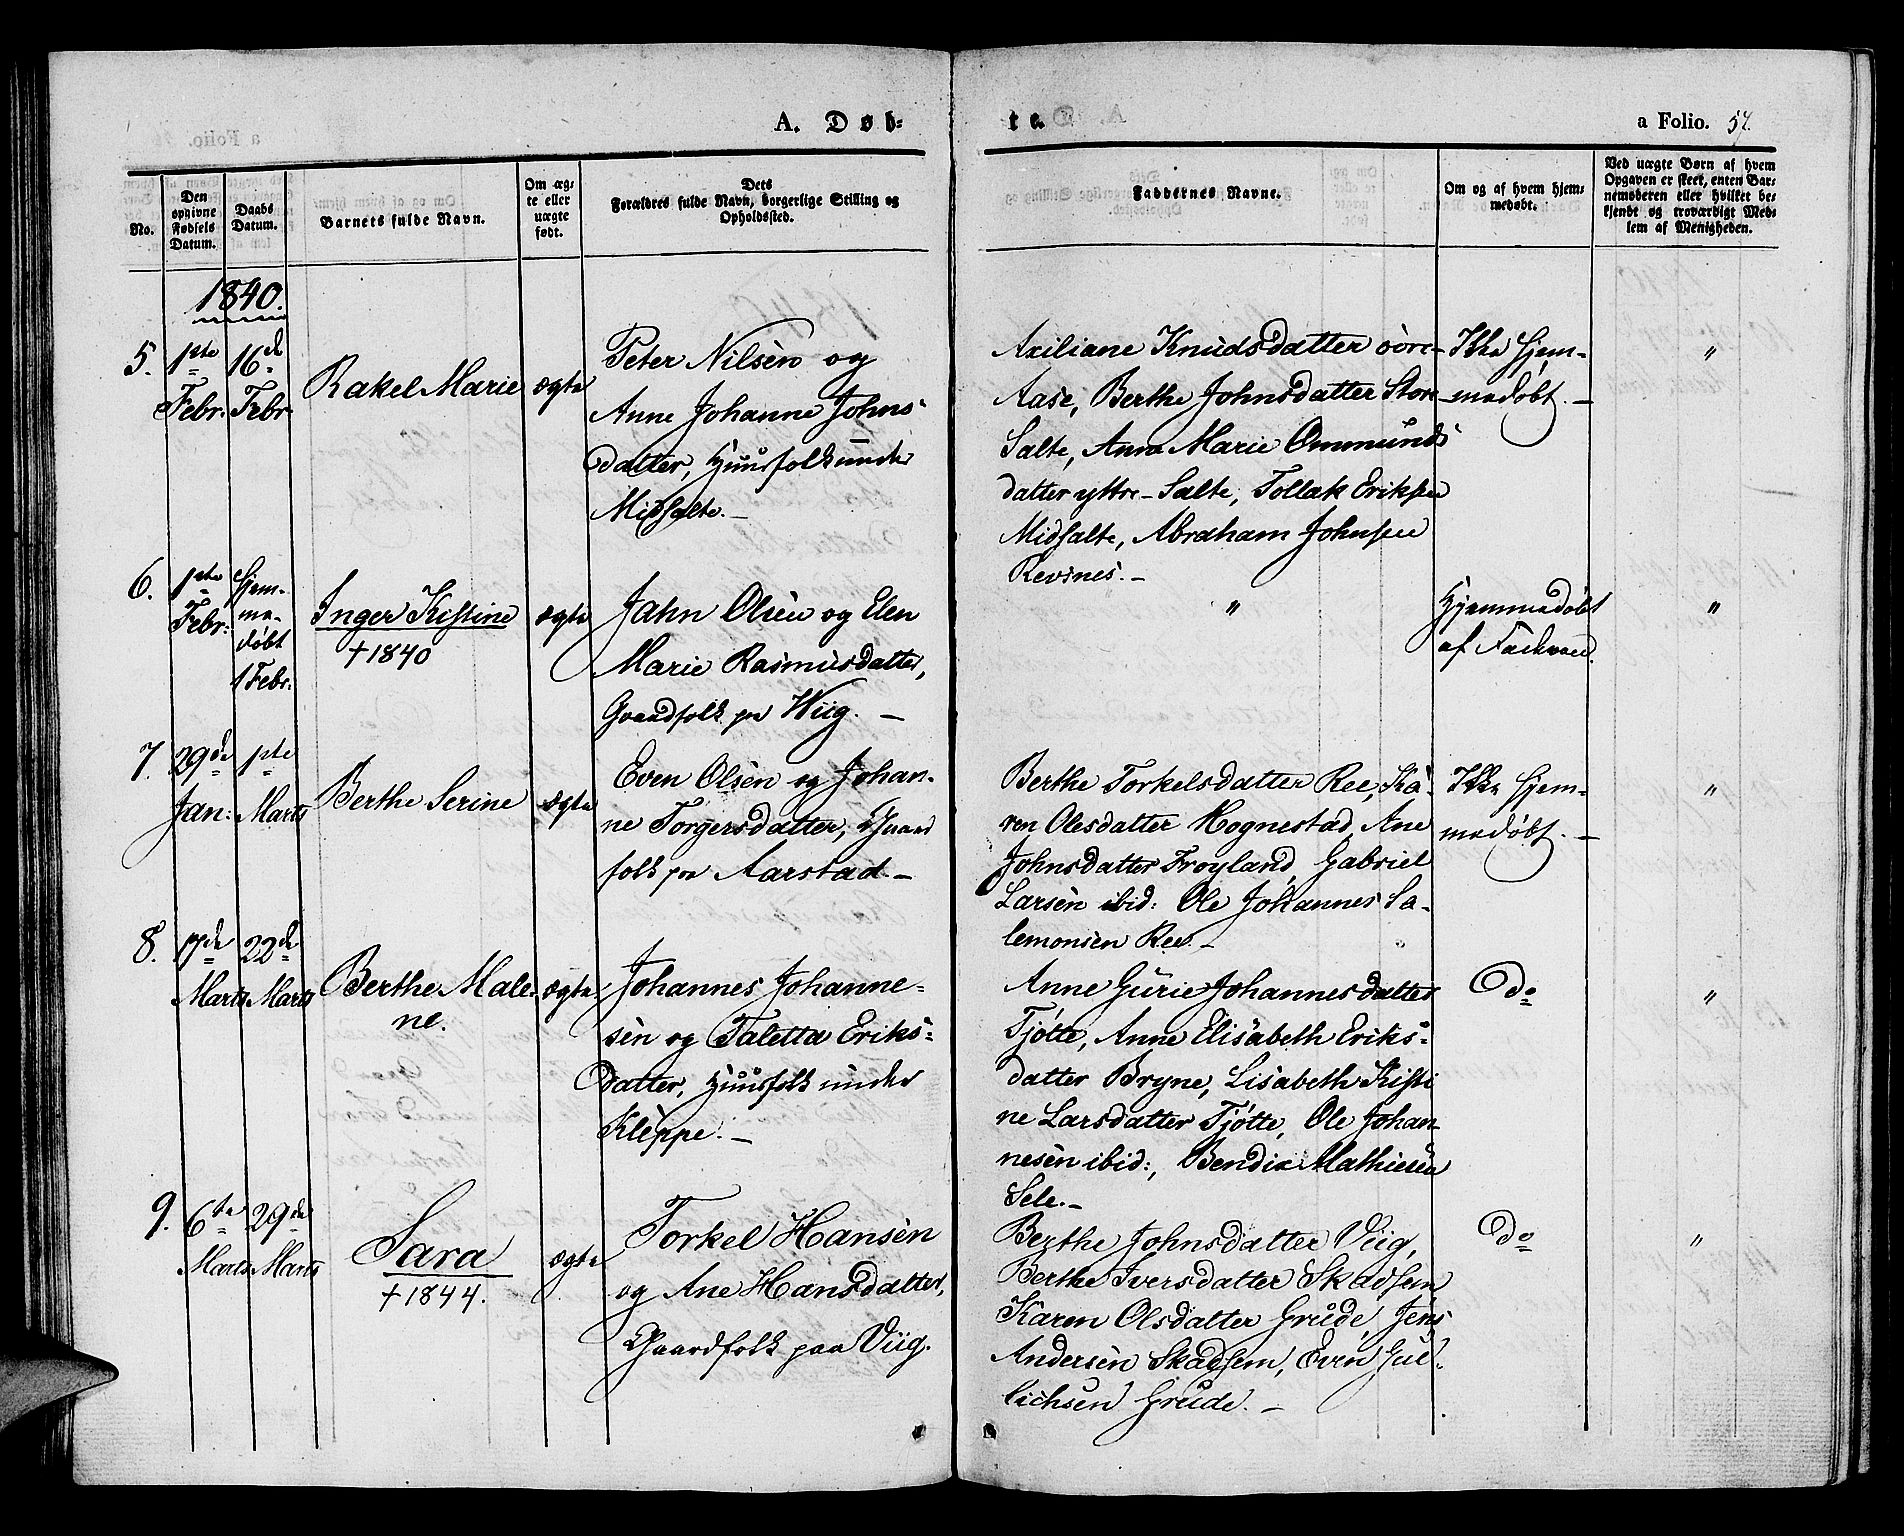 A. Døb-
te.
a Folio. 57.
No.
Den opgivne Fødsels Datum.
Daabs Datum.
Barnets fulde Navn.
Om ægte eller uægte født.
Dets Forældres fulde Navn, borgerlige Stilling og Opholdssted.
Faddernes Navne.
Om og af hvem hjemmedøbt.
Ved uægte Børn af hvem
Opgaven er skeet, enten Bar-
nemoderen eller hvilket be-
kjendt og troværdigt Med-
lem af Menigheden.
1840.
5.
1ste
Febr:
16de
Febr:
Rakel Marie
ægte
Peter Nilsen og
Anne Johanne Johns
datter, Huusfolk under
Midsalte.-
Axiliane Knudsdatter övre-
Aase, Berthe Johnsdatter Store
Salte, Anna Marie Ommunds
datter yttre-Salte, Tollak Eriksen
Midsalte, Abraham Johnsen
Revines.-
Ikke Hjem-
medøbt.-
"
6.
1ste
Febr:
Hjem-
me-
døbt
1 Febr:
Inger Kistine
+1840
ægte
Jahn Olsen og Elen
Marie Rasmusdatter,
Gaardfolk paa Wiig. -
"
Hjemmedøbt
af
"
7.
29de
Jan:
1ste
Marts
Berthe Serine
ægte
Even Olsen og Johan-
ne Torgersdatter, Gaard
folk paa Aarstad.-
Berthe Torkelsdatter Ree, Ka-
ren Olesdatter Hognestad, Ane
Johnsdatter Frøyland, Gabriel
Larsen ibid: Ole Johannes Sa-
lemonsen Ree.-
Ikke Hjem-
medøbt.-
"
8.
17de
Marts
22de
Marts
Berthe Male-
ne.
ægte
Johannes Johanne-
sen og Taletta Eriks-
datter, Huusfolk under
Kleppe.-
Anne Gurie Johannesdatter
Tjøtte, Anne Elisabeth Eriks-
datter Bryne, Lisabeth Kisti
ne Larsdatter Tjøtte, Ole Johan-
nesen ibid:, Bendix Mathiesen
Sele.-
Do
"
9.
6te
Marts
29de
Marts
Sara
+1844.
ægte
Torkel Hansen
og Ane Hansdatter,
Gaardfolk paa Viig.
Berthe Johnsdatter Viig,
Berthe Iversdatter Skadsem
Karen Olsdatter Grude, Jens
Andersen Skadsem, Even Gul-
lichsen Grude.-
Do
"